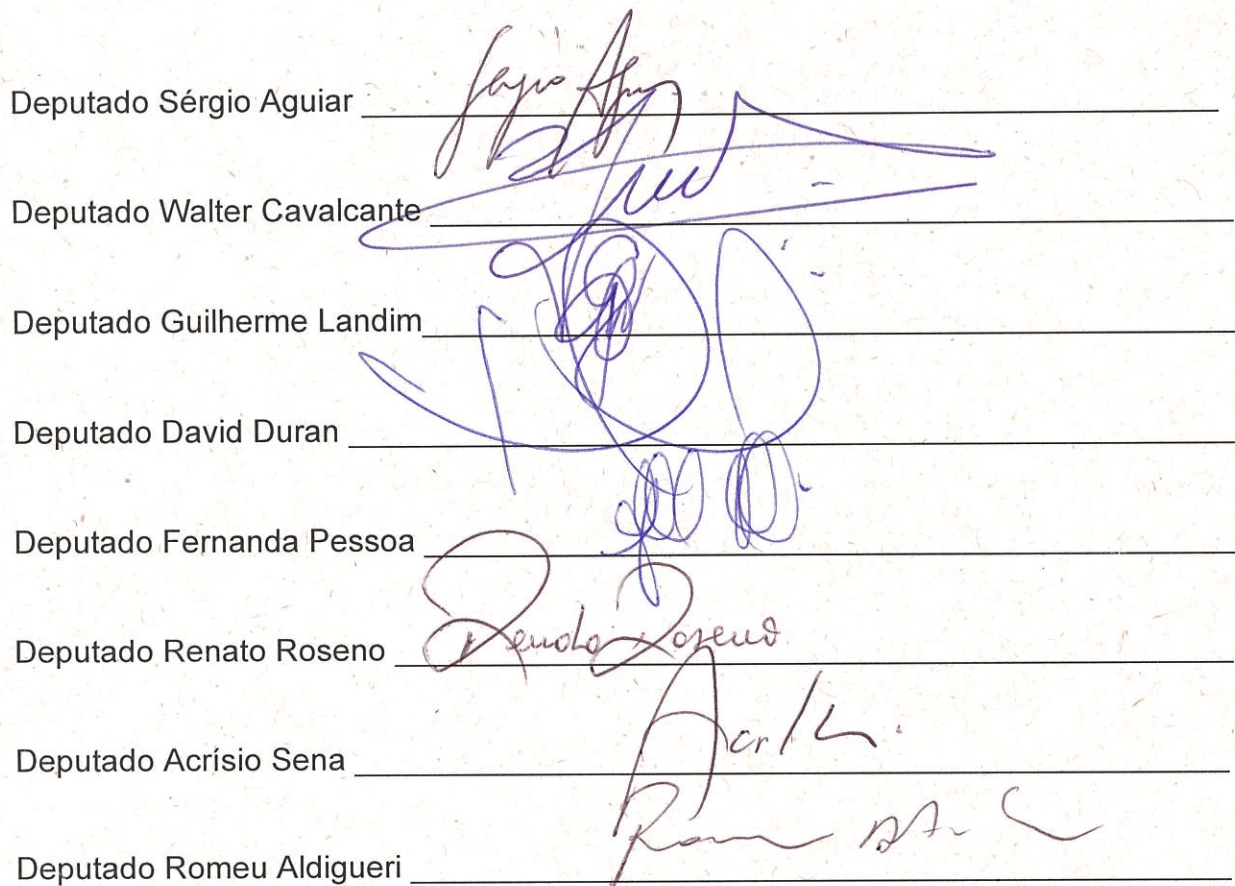 Deputado Sérgio Aguiar
Deputado Walter Cavalcante
Deputado Guilherme Landim
Deputado David Duran
Deputado Fernanda Pessoa
Deputado Renato Roseno Renato Roseno
Deputado Acrísio Sena
Deputado Romeu Aldigueri